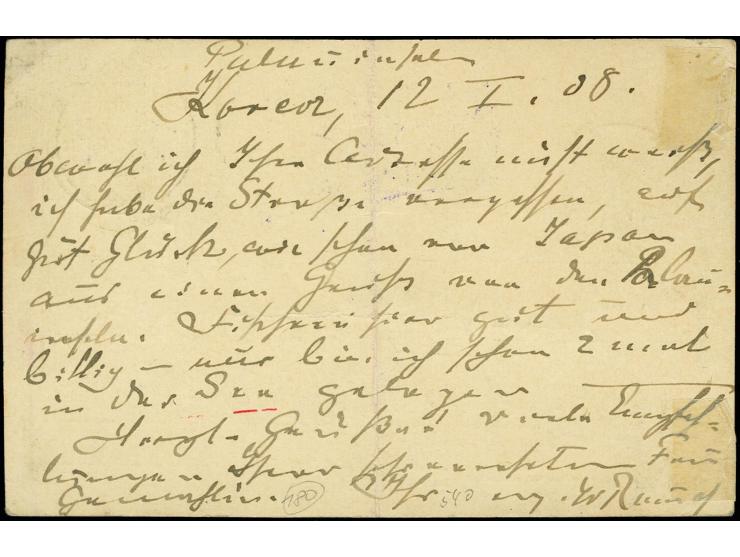 Palauinseln
Korror, 12 I. 08.
Obwohl ich Ihre Adresse nicht weiß,
ich habe die Straße vergessen, auf
gut Glück, wie schon von Japan
aus einen Gruß von den Palau=
inseln. Fischen hier gut und
billig – nur bin ich schon 2 mal
in der See gelegen
Herzl. Grüße! Viele Empfeh-
lungen Ihrer verehrten Frau
Gemahlin. Ihr
180
540